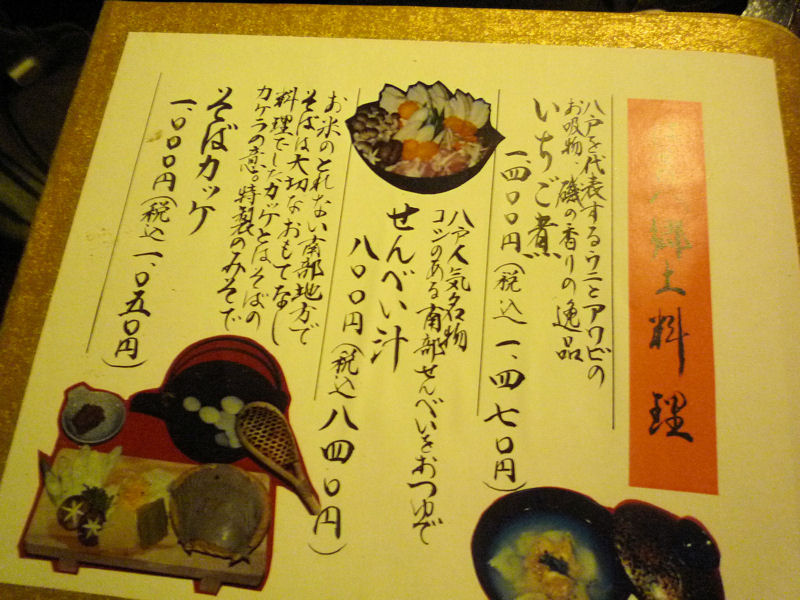 郷土料理
八戸を代表するウニとアワビの
お吸物、磯の香りの逸品
いちご煮
一、四〇〇円(税込一、四七〇円)
八戸人気名物
コシのある南部せんべいをおつゆで
せんべい汁
八〇〇円(税込八四〇円)
お米のとれない南部地方で
そばは大切なおもてなし
料理でしたカッケとはそばの
カケラの意。特製のみそで
そばカッケ
一、〇〇〇円(税込一、〇五〇円)